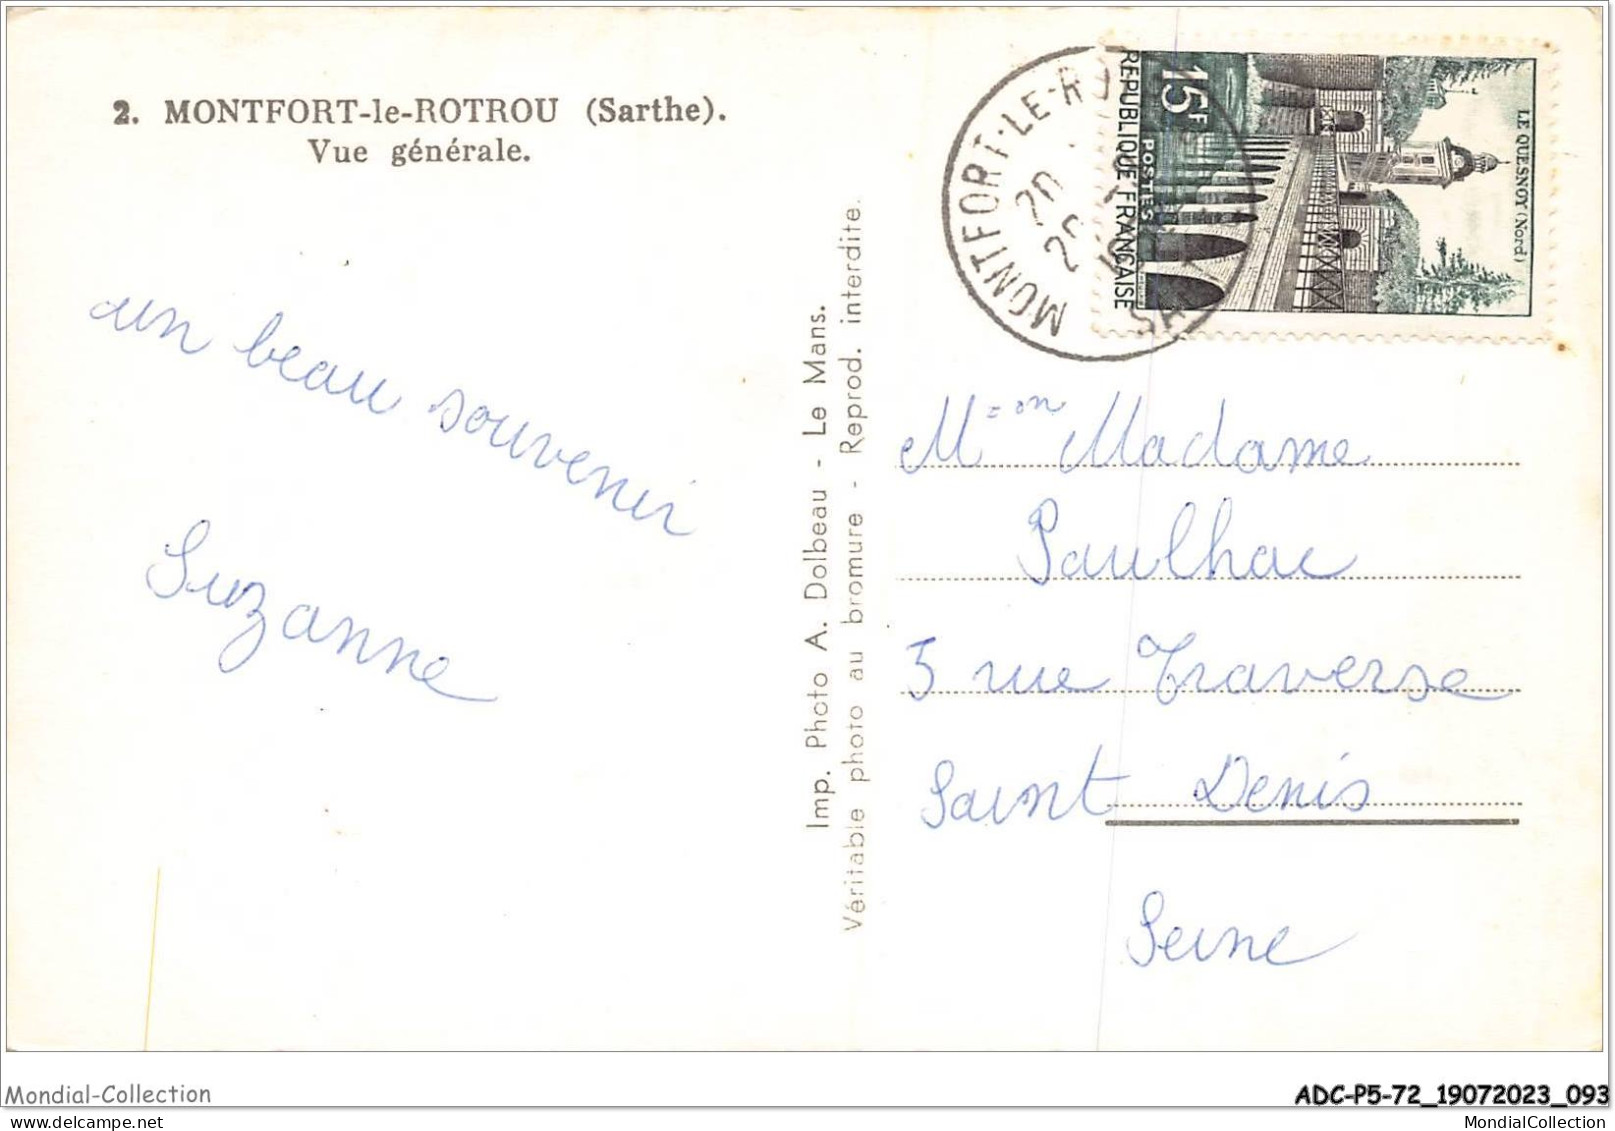 2. MONTFORT-le-ROTROU (Sarthe).
Vue générale.
un beau souvenir
Suzanne
Imp. Photo A. Dolbeau - Le Mans.
Véritable photo au bromure - Reprod. interdite.
MONTFORT-LE-R
20
SAR
15F
POSTES
REPUBLIQUE FRANÇAISE
LE QUESNOY (Nord)
Madame
Paulhac
5 rue Traverse
Saint Denis
Seine
Mondial-Collection
ADC-P5-72_19072023_093
MondialCollection